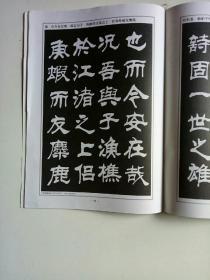 詩固一世之雄
也而今安在哉
況吾與子漁樵
於江渚之上侶
魚蝦而友麋鹿